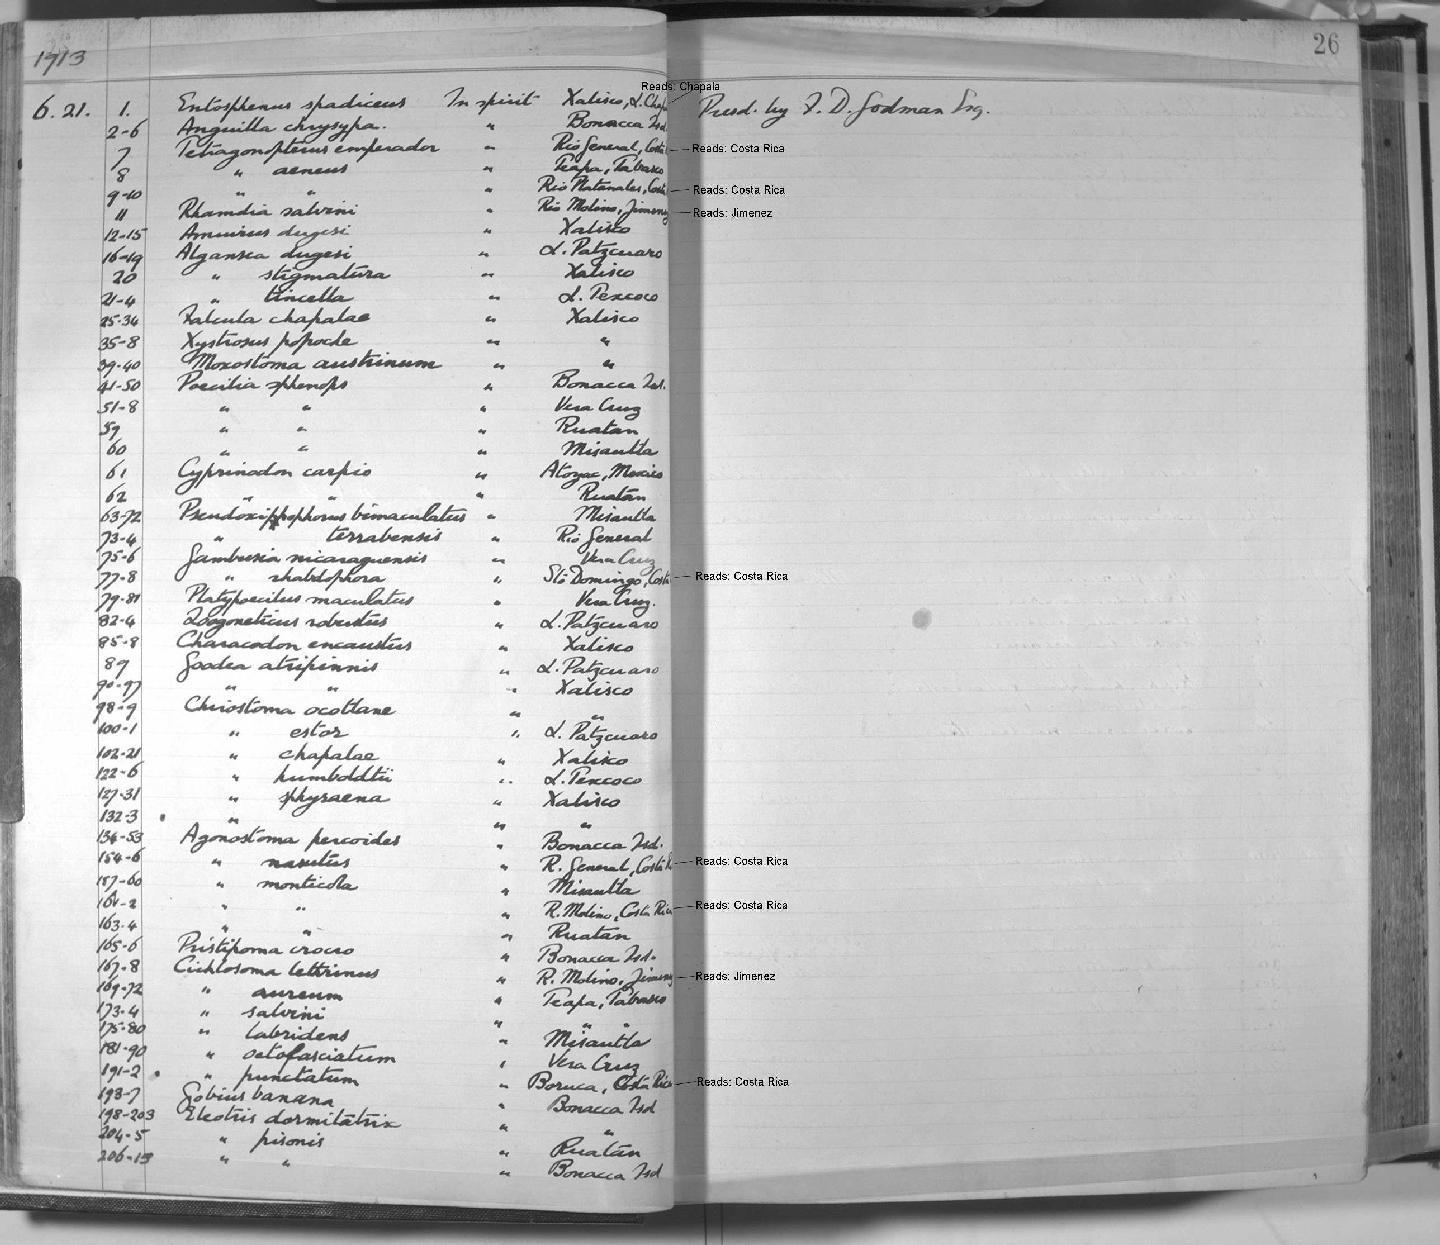 1913
26
Reads: Chapala
6.21. 1. Entosphenus spadiceus In spirit Xalisco, L. Chapa Presd. by F. D. Godman Esq.
2-6 Anguilla chrysypa. " Bonacca Isd.
7 Tetragonopterus emperador " Rio General, Costa Reads: Costa Rica
8 " aeneus " Teapa, Tabasco
9-10 " " " Rio Platanales, Costa Reads: Costa Rica
11 Rhamdia salvini " Rio Molino, Jimenez Reads: Jimenez
12-15 Amiurus dugesi " Xalisco
16-19 Algansea dugesi " L. Patzcuaro
20 " stigmatura " Xalisco
21-4 " tincella " L. Texcoco
25-34 Falcula chapalae " Xalisco
35-8 Xystrosus popoche " "
39-40 Moxostoma austrinum " "
41-50 Poecilia sphenops " Bonacca Isd.
51-8 " " " Vera Cruz
59 " " " Ruatan
60 " " " Misantla
61 Cyprinodon carpio " Atoyac, Mexico
62 " " " Ruatan
63-72 Pseudoxiphophorus bimaculatus " Misantla
73-4 " terrabensis " Rio General
75-6 Gambusia nicaraguensis " Vera Cruz
77-8 " rhabdophora " Sto Domingo, Costa Reads: Costa Rica
79-81 Platypoecilus maculatus " Vera Cruz.
82-4 Zoogoneticus robustus " L. Patzcuaro
85-8 Characodon encaustus " Xalisco
89 Goodea atripinnis " L. Patzcuaro
90-97 " " " Xalisco
98-9 Chirostoma ocotlane " "
100-1 " estor " L. Patzcuaro
102-21 " chapalae " Xalisco
122-6 " humboldtii " L. Texcoco
127-31 " sphyraena " Xalisco
132-3 " " "
134-53 Agonostoma percoides " Bonacca Isd.
154-6 " nasutus " R. General, Costa R Reads: Costa Rica
157-60 " monticola " Misantla
161-2 " " " R. Molino, Costa Rica Reads: Costa Rica
163-4 " " " Ruatan
165-6 Pristipoma crocro " Bonacca Isd.
167-8 Cichlosoma lethrinus " R. Molino, Jimenez Reads: Jimenez
169-72 " aureum " Teapa, Tabasco
173-4 " salvini " " "
175-80 " labridens " Misantla
181-90 " octofasciatum " Vera Cruz
191-2 " punctatum " Boruca, Costa Rica Reads: Costa Rica
193-7 Gobius banana " Bonacca Isd
198-203 Eleotris dormitatrix " "
204-5 " pisonis " Ruatan
206-15 " " " Bonacca Isd